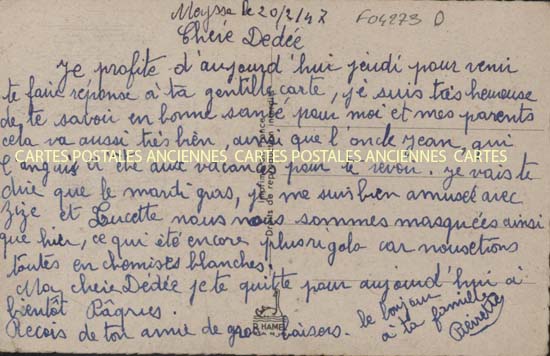 Meysse le 20/2/47 F04273 D
Cheie Dedée
Je profite d'aujourd'hui jeudi pour venir
te faire réponse à ta gentille carte, je suis très heureuse
de te savoir en bonne santé pour moi et mes parents
cela va aussi très bien, ainsi que l'oncle Jean, qui
CARTES POSTALES ANCIENNES CARTES POSTALES ANCIENNES CARTES
été aux vacances pour le revoir. Je vais te
dire que le mardi gras, je me suis bien amusée avec
Zize et Lucette nous nous sommes masquées ainsi
que hier, ce qui été encore plus rigolo car nous étions
toutes en chemises blanches.
Ma cheie Dedée je te quitte pour aujourd'hui à
bientôt Pâques.
Reçois de ton amie de gros baisers. le bonjour
à ta famille
HAMEL